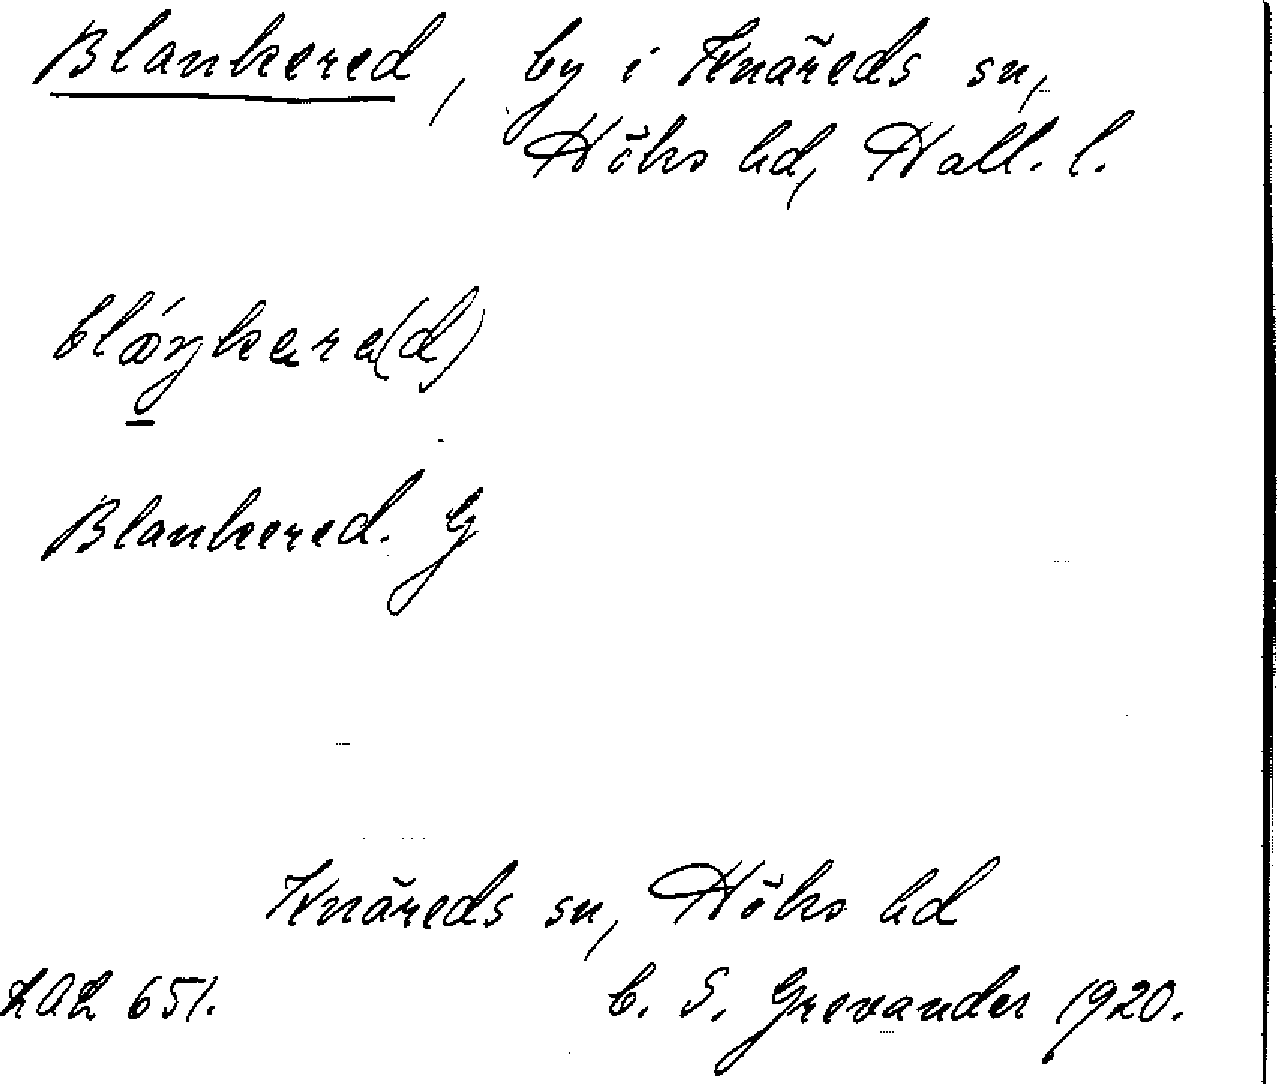 Blankered, by i Knäreds sn,
Höks hd, Hall. l.
blá̱ŋkəre(d)
Blankered. G
Knäreds sn, Höks hd
LAL 651. C. S. Grevander 1920.